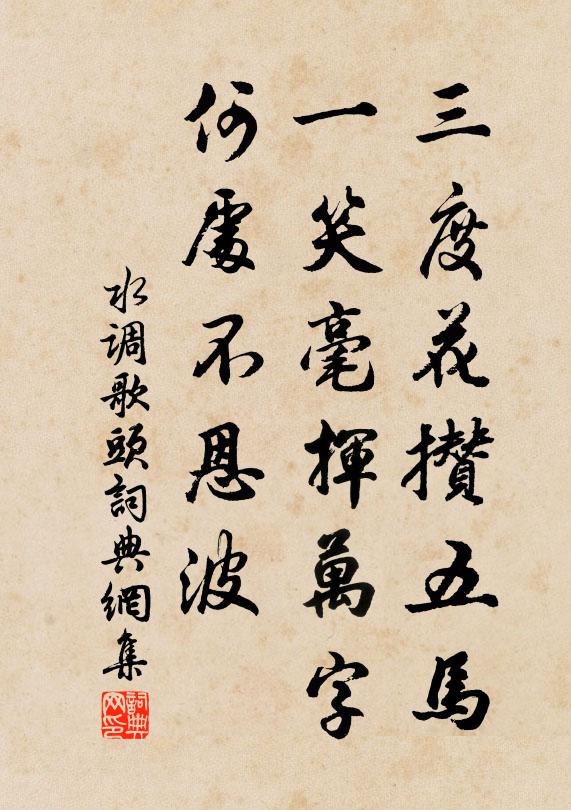 三度花攢五馬
一笑毫揮萬字
何處不恩波
水調歌頭詞典網集
詞典
网印